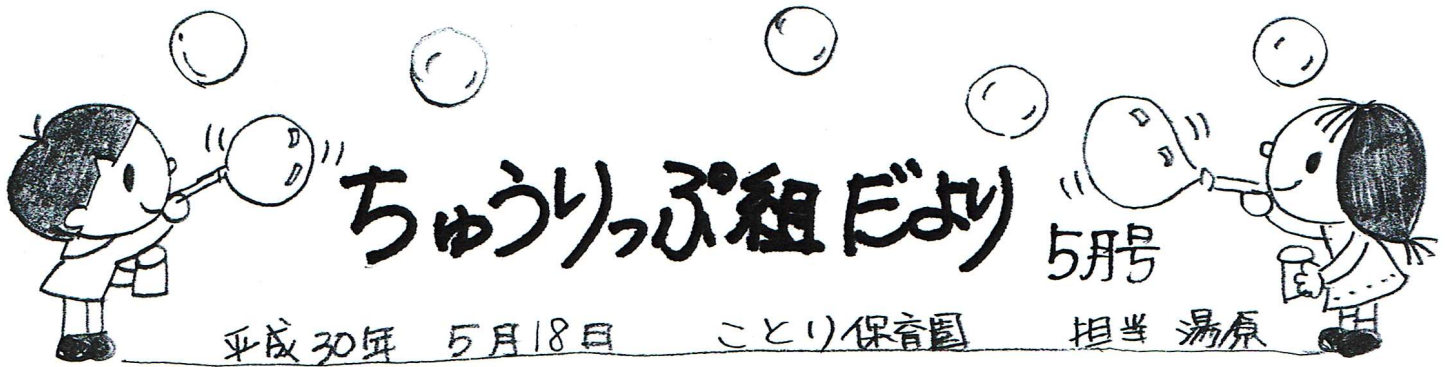 ちゅうりっぷ組だより
5月号
平成30年 5月18日 ことり保育園 担当 湯原